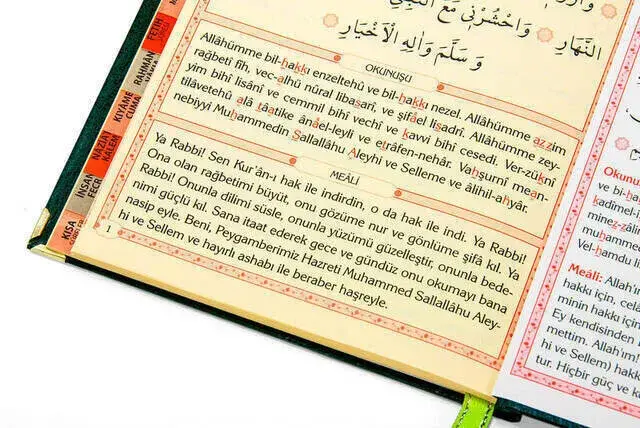 النَّهَارِ وَاحْشُرْنِي مَعَ النَّبِيِّ
وَسَلَّمَ وَاٰلِهِ الْاَخْيَارِ
OKUNUŞU
Allâhümme bil-hakkı enzeltehû ve bil-hakkı nezel. Allâhümme azzim
rağbetî fîh, vec-alhû nûral libasarî, ve şifâel lisadrî. Allâhümme zey-
yim bihî lisânî ve cemmil bihî vechî ve kavvi bihî cesedî. Ver-zuknî
tilâvetehû alâ tâatike ânâel-leyli ve etrâfen-nehâr. Vahşurnî mean-
nebiyyi Muhammedin Sallallâhu Aleyhi veSelleme ve âlihil-ahyâr.
MEÂLİ
Ya Rabbi! Sen Kur'ân-ı hak ile indirdin, o da hak ile indi. Ya Rabbi!
Ona olan rağbetimi büyüt, onu gözüme nur ve gönlüme şifâ kıl. Ya
Rabbi! Onunla dilimi süsle, onunla yüzümü güzelleştir, onunla bede-
nimi güçlü kıl. Sana itaat ederek gece ve gündüz onu okumayı bana
nasip eyle. Beni, Peygamberimiz Hazreti Muhammed Sallallâhu Aley-
hi ve Sellem ve hayırlı ashabı ile beraber haşreyle.
1
FETİH
RAHMÂN
KIYÂME
CUMA
NAZİAT
KALEM
İNSAN
FECR
KISA
Okunu
ve bi-ha
kadîmeke
mine
hu
Vel-hamdu li
Meâli: Allah'ı
hakkı için, cela
minin hakkı için
Ey kendisinden
mettim. Allah'ım!
hi ve Sellem) hakk
tur. Hiçbir güç ve k